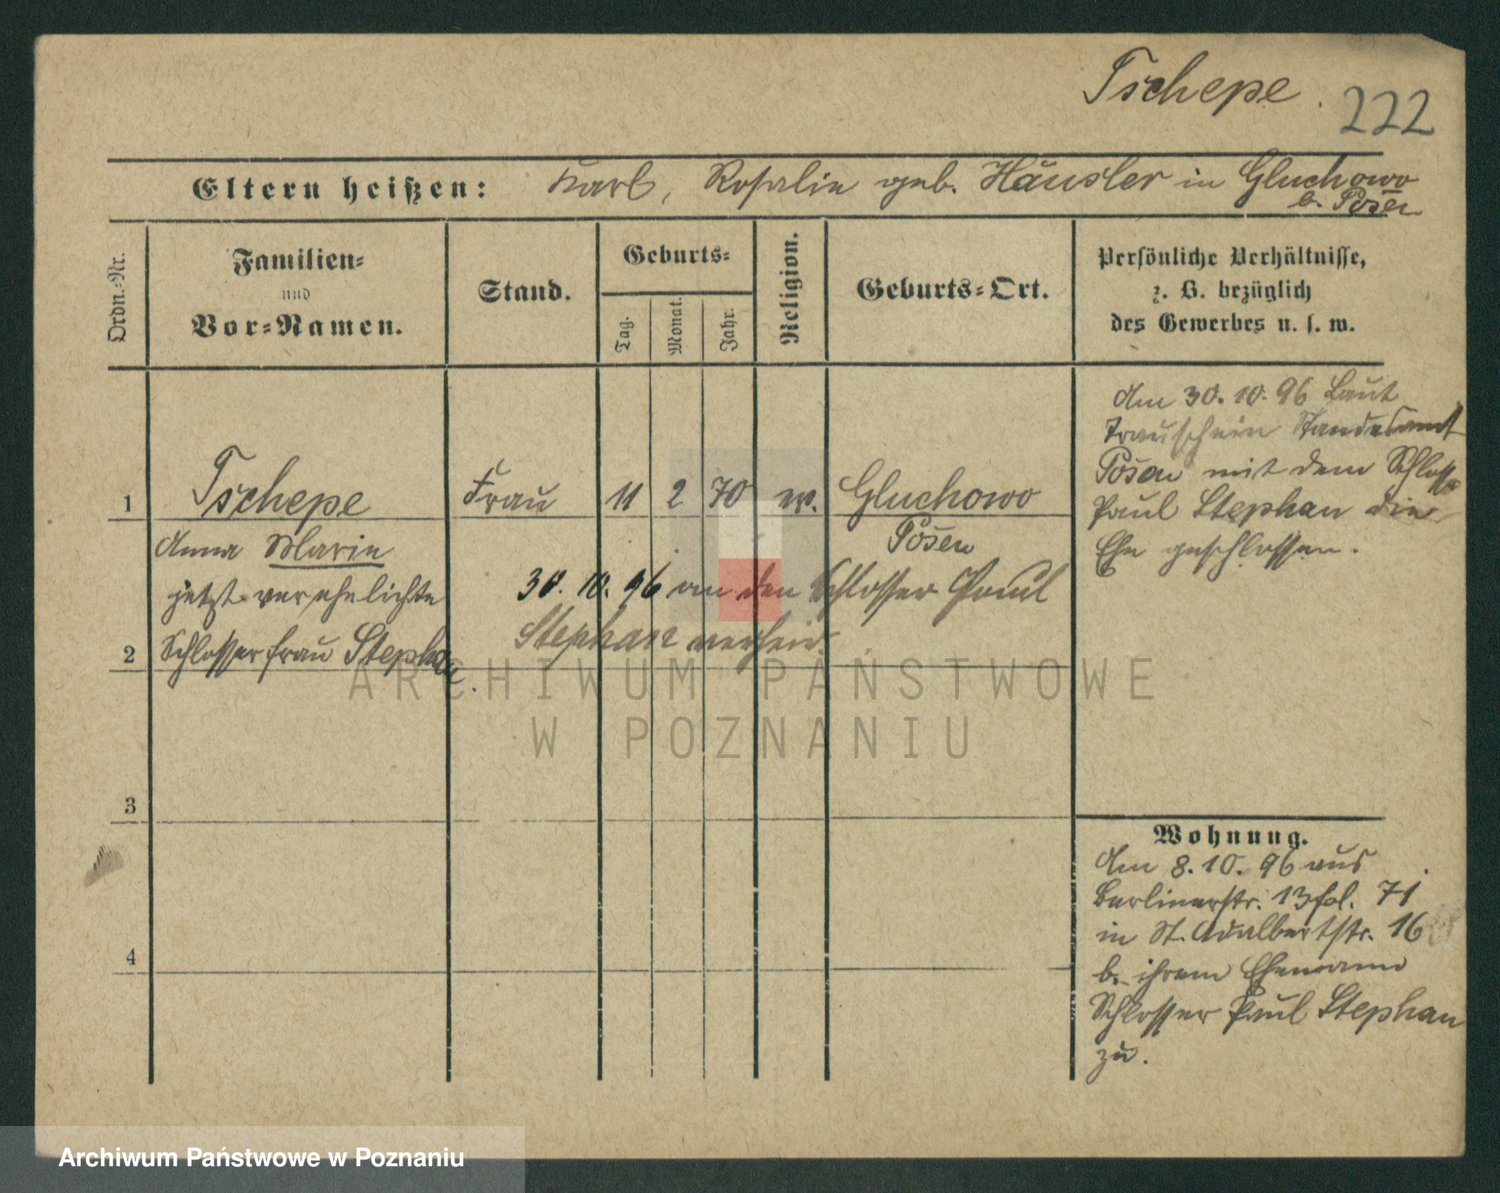 Tschepe.
222
Eltern heißen: Karl, Rosalie geb. Häusler in Gluchowo
b. Posen
Ordn.-Nr.
Familien-
und
Vor-Namen.
Stand.
Geburts-
Tag.
Monat.
Jahr.
Religion.
Geburts-Ort.
Persönliche Verhältnisse,
z. B. bezüglich
des Gewerbes u. s. w.
1 Tschepe Frau 11 2 70 ev. Gluchowo
Posen
Anna Marie
jetzt verehelichte
2 Schlosserfrau Stephan.
30. 10. 96 an den Schlosser Paul
Stephan verheir.
Am 30. 10. 96 laut
Trauschein Standesamt
Posen mit dem Schlosser
Paul Stephan die
Ehe geschlossen.
3
4
Wohnung.
Am 8. 10. 96 aus
Berlinerstr. 13 fol. 71
in St. Adalbertstr. 16
b. ihrem Ehemann
Schlosser Paul Stephan
zu.
ARCHIWUM PAŃSTWOWE
W POZNANIU
Archiwum Państwowe w Poznaniu